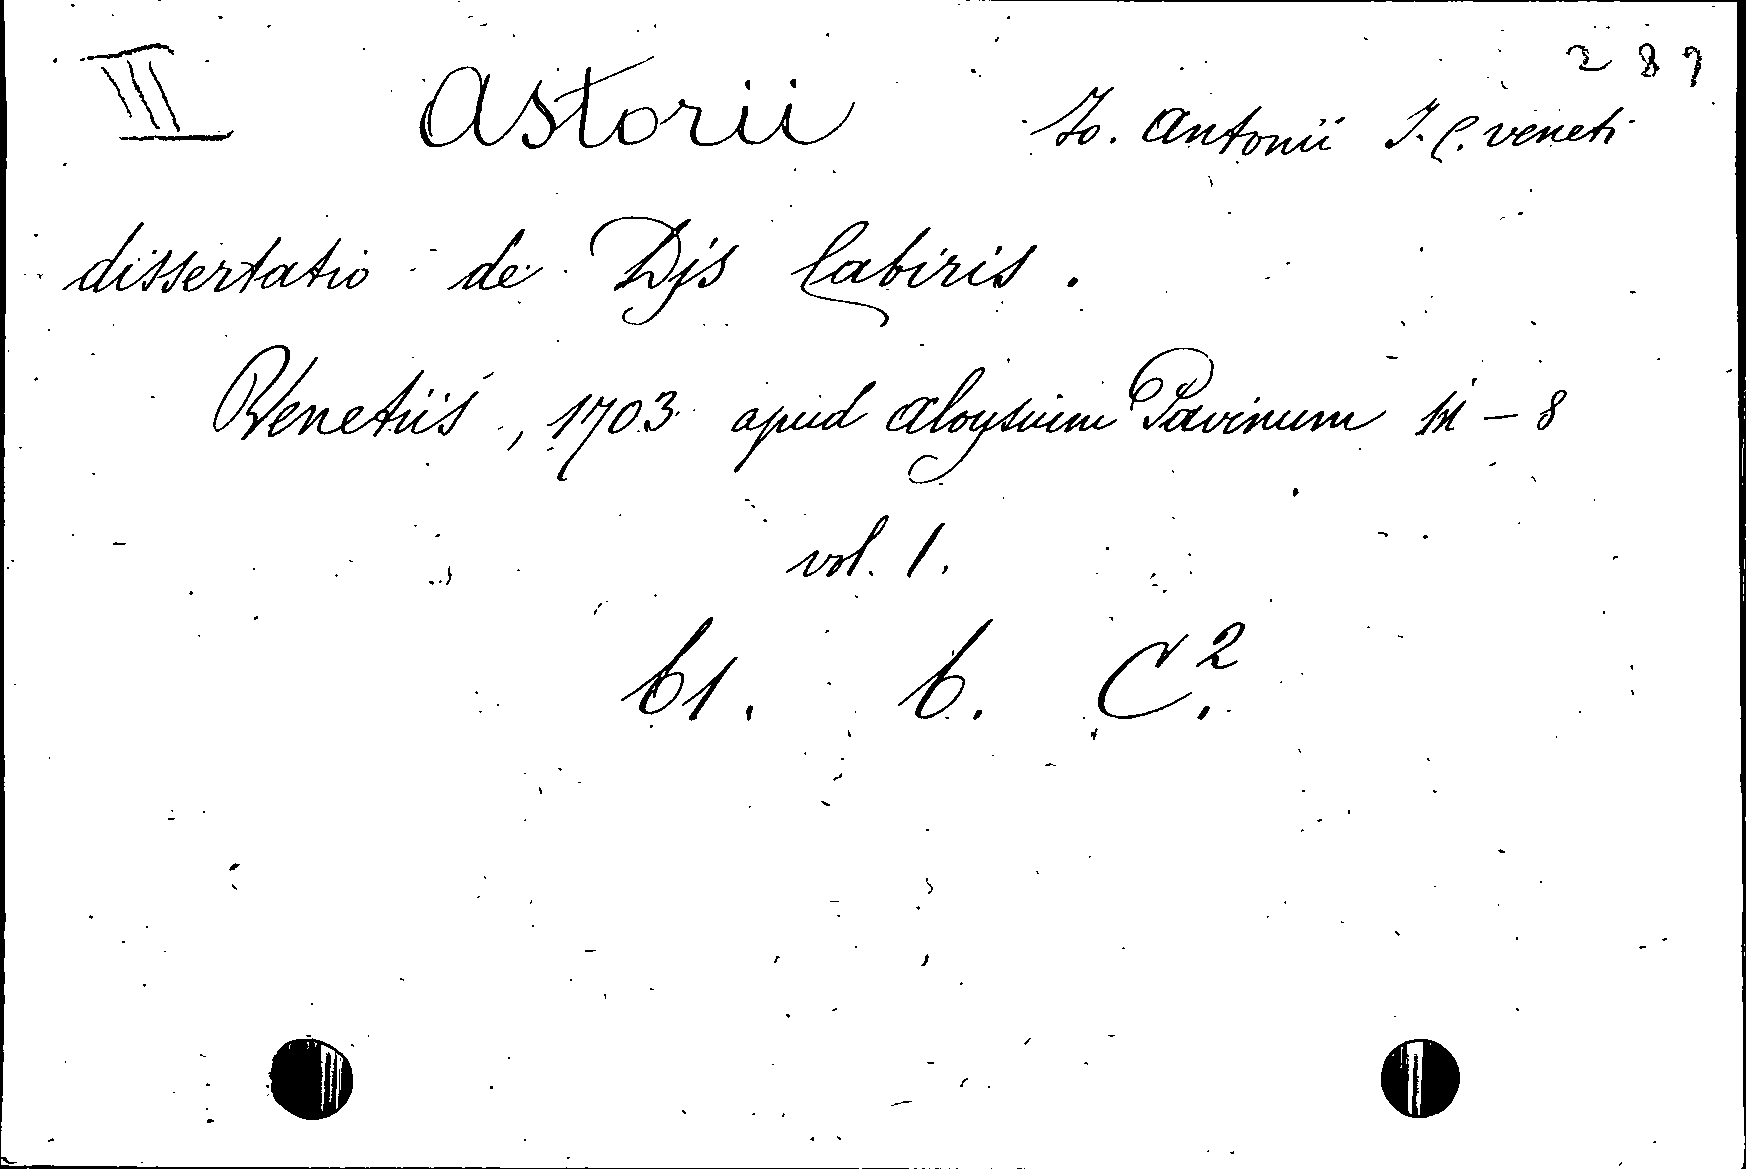 III Astorii Jo. Antonii J. C. veneti 289
dissertatio de Djs Cabiris.
Venetiis, 1703 apud Aloysium Pavinum in-8
vol. 1.
61. 6. C².